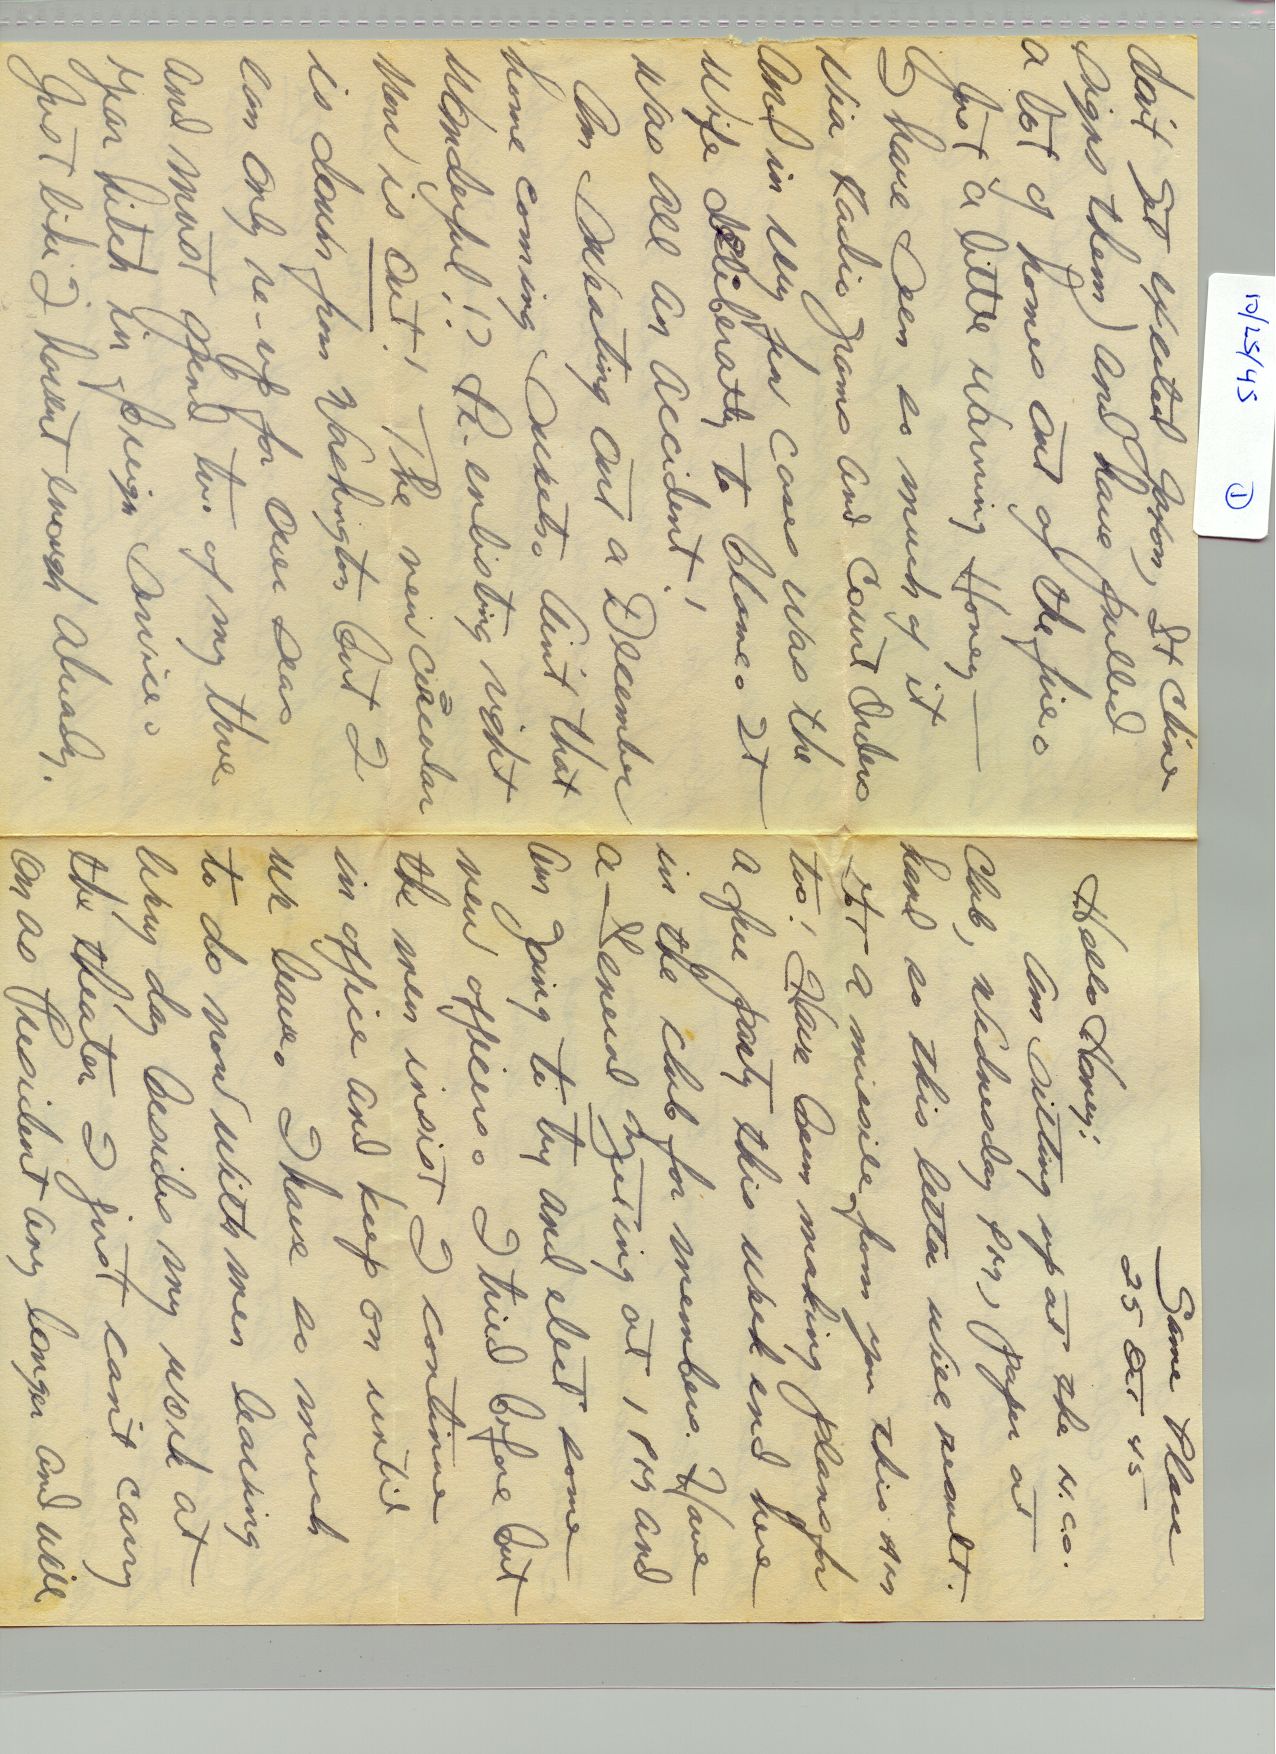 10/25/45 ①
Same Place
25 Oct 45
Hello Honey:
Am sitting up at the N.C.O.
Club, Wednesday PM, paper at
hand so this letter will result.
Got a missile from you this AM
too! Have been making plans for
a free party this week end here
in the club for members. Have
a General Meeting at 1 PM and
am going to try and elect some
new officers. I tried before but
the men insist I continue
in office and keep on until
we leave. I have so much
to do now with men leaving
every day besides my work at
the theater I just can't carry
on as President any longer and will
don't get excited Japon, St Clair
signs them) and have pulled
a lot of homes out of the fire.
Just a little warning Honey —
I have seen so much of it
via radio grams and Court Orders
and in very few cases was the
wife deliberately to blame. It
was all an accident!
Am sweating out a December
home coming Sweets. Aint that
wonderful!? Re-enlisting right
now is out! The new circular
is down from Washington but I
can only re-up for over seas
and must spend two of my three
year hitch in foreign service.
Just like I havent enough already.